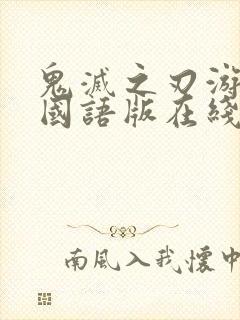 鬼滅之刃游
國語版在綫
南風入我懷中